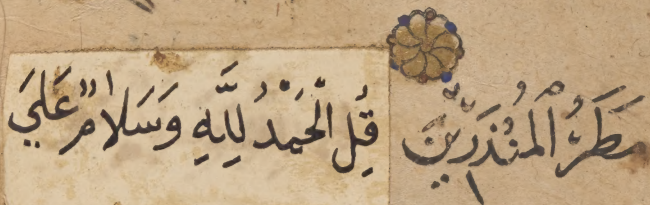 مَطَرُ الْمُنْذَرِينَ قُلِ الْحَمْدُ لِلَّهِ وَسَلَامٌ عَلَىَ